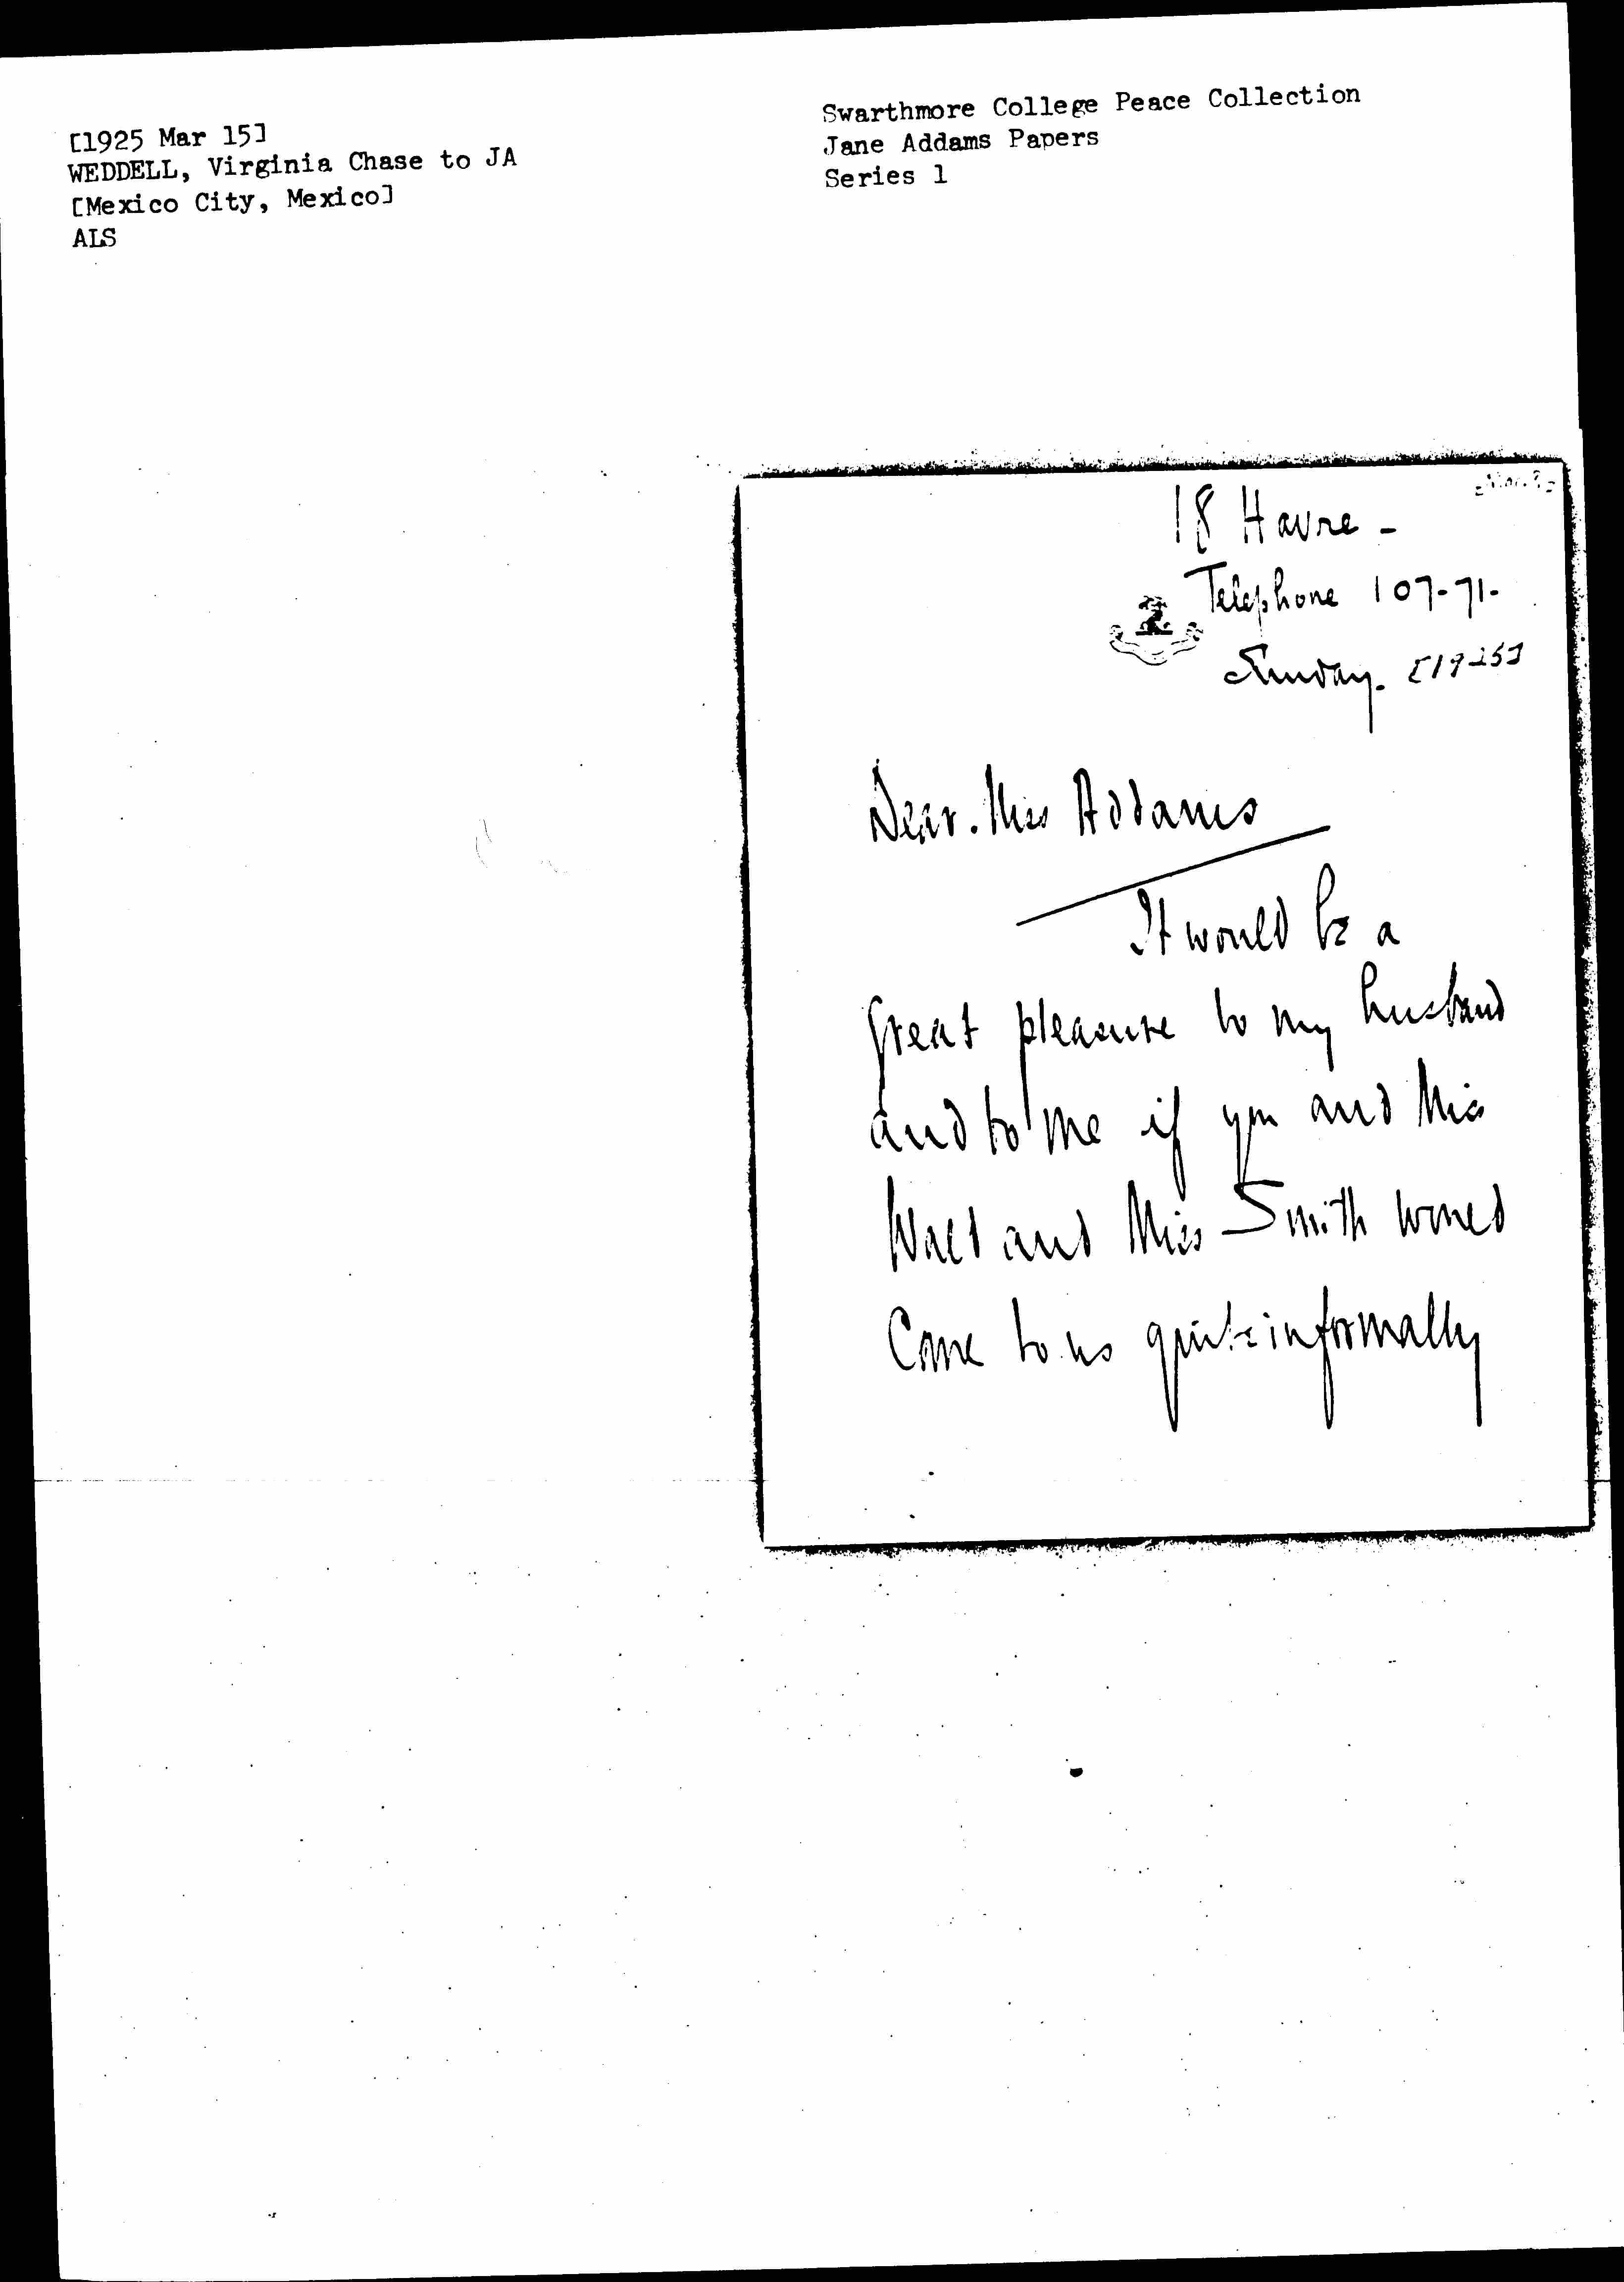 [1925 Mar 15]
WEDDELL, Virginia Chase to JA
[Mexico City, Mexico]
ALS
Swarthmore College Peace Collection
Jane Addams Papers
Series 1
18 Havre -
Telephone 107-71-
Sunday. [1925]
Dear. Miss Addams
It would be a
great pleasure to my husband
and to me if you and Miss
Wald and Miss Smith would
Come to us quite informally